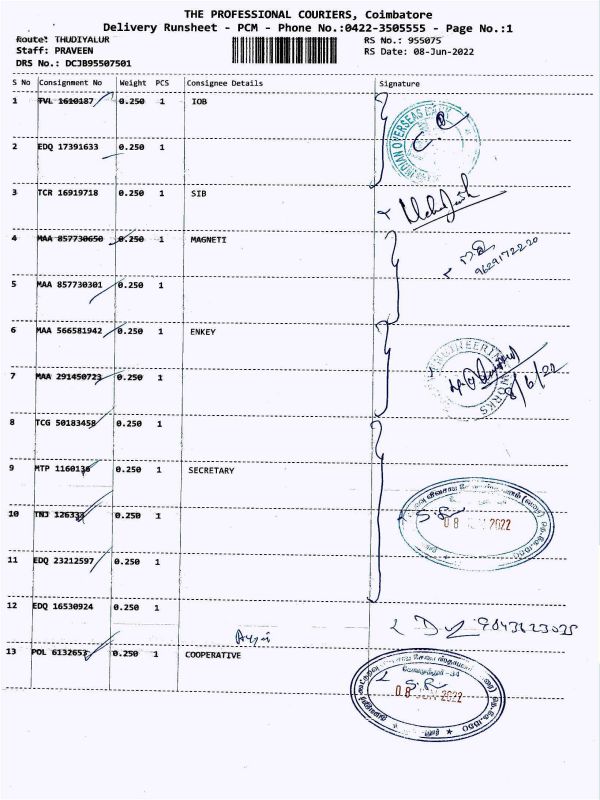 THE PROFESSIONAL COURIERS, Coimbatore
Delivery Runsheet - PCM - Phone No.:0422-3505555 - Page No.:1
Route: THUDIYALUR RS No.: 955075
Staff: PRAVEEN RS Date: 08-Jun-2022
DRS No.: DCJB95507501
S No Consignment No Weight PCS Consignee Details Signature
1 TVL 1610187 0.250 1 IOB
INDIAN OVERSEAS BANK
2 EDQ 17391633 0.250 1
3 TCR 16919718 0.250 1 SIB
4 MAA 857730650 0.250 1 MAGNETI
9629172220
5 MAA 857730301 0.250 1
6 MAA 566581942 0.250 1 ENKEY
7 MAA 291450723 0.250 1
8/6/22
8 TCG 50183458 0.250 1
9 MTP 1160136 0.250 1 SECRETARY
10 TNJ 0.250 1
S.R
08 JUN 2022
11 EDQ 23212597 0.250 1
12 EDQ 16530924 0.250 1
13 POL 6132653 0.250 1 COOPERATIVE
S.R
08 JUN 2022